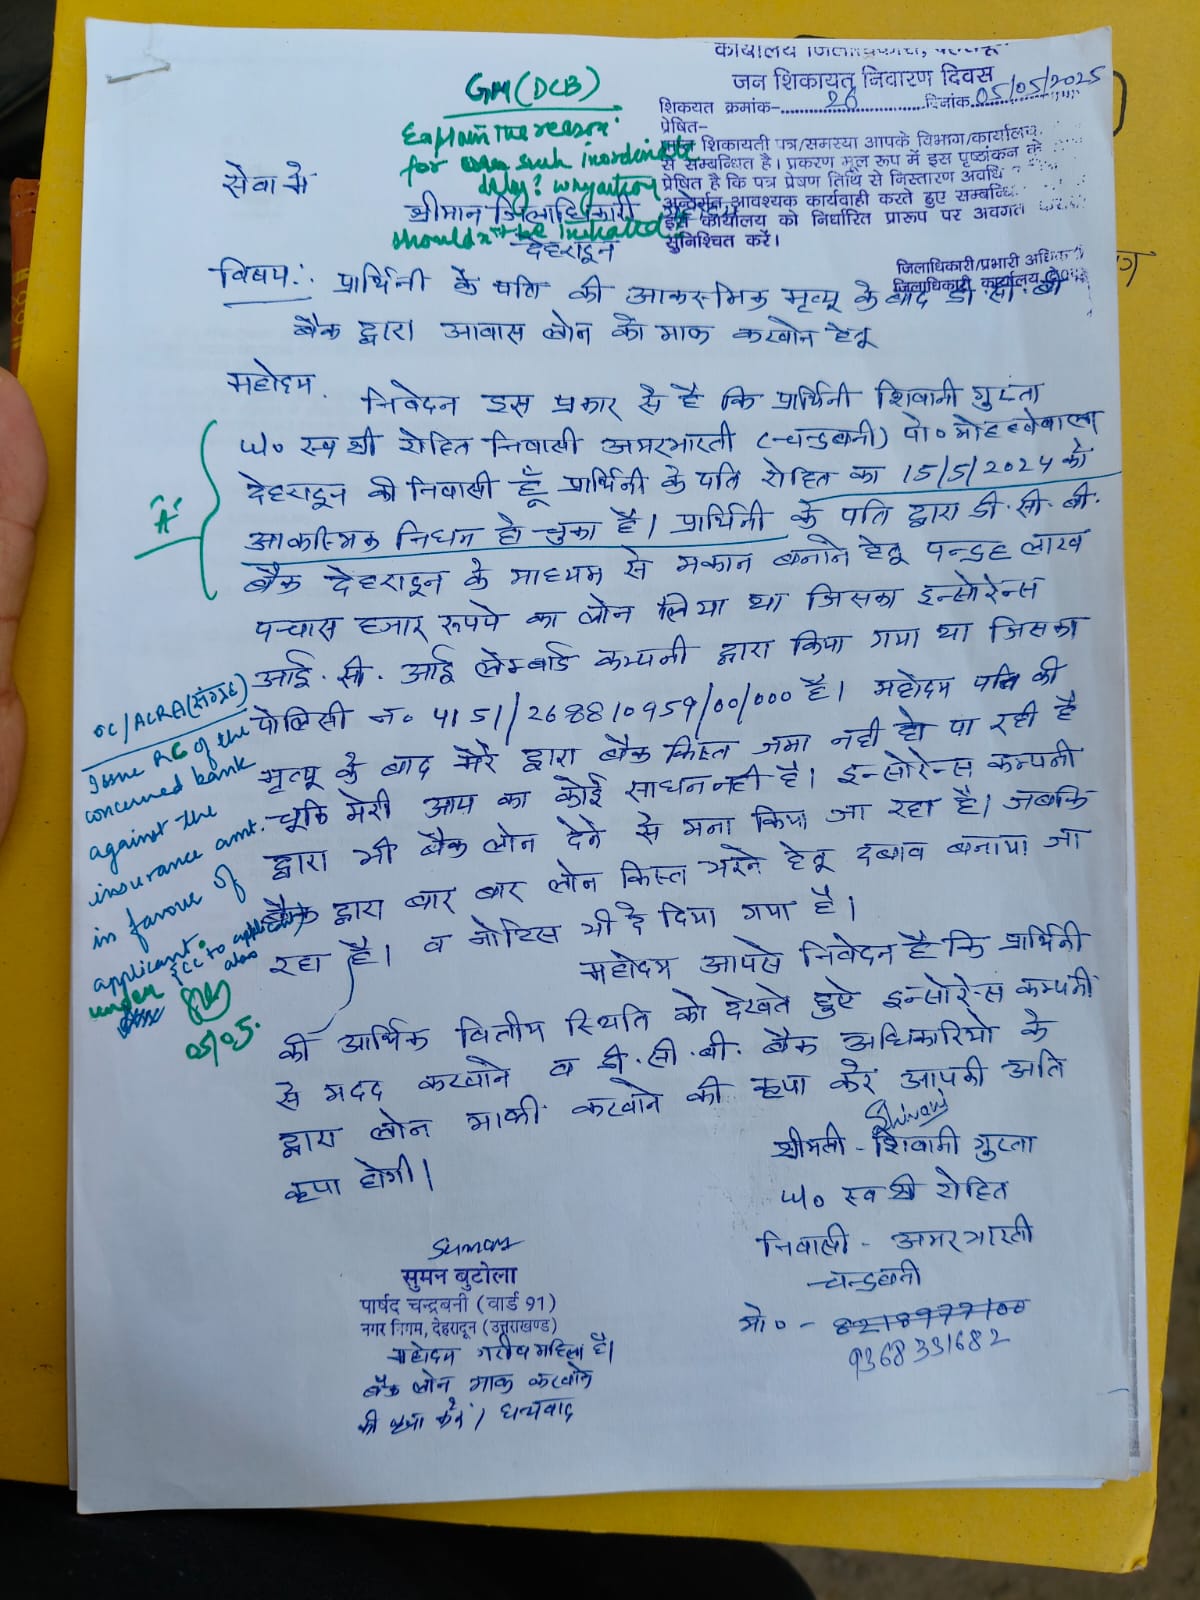 कार्यालय जिलाधिकारी,
जन शिकायत निवारण दिवस
शिकायत क्रमांक- 26 दिनांक 05/05/2025
प्रेषित-
शिकायती पत्र/समस्या आपके विभाग/कार्यालय
से सम्बन्धित है। प्रकरण मूल रूप में इस पृष्ठांकन के
प्रेषित है कि पत्र प्रेषण तिथि से निस्तारण अवधि
अन्तर्गत आवश्यक कार्यवाही करते हुए सम्बन्धि
इस कार्यालय को निर्धारित प्रारूप पर अवगत
सुनिश्चित करें।
जिलाधिकारी/प्रभारी अधि
जिलाधिकारी कार्यालय
GM (DCB)
Explain the reason
for such inordinate
delay? why action
shouldn't be initiated
सेवा मे
श्रीमान जिलाधिकारी
देहरादून
विषय:- प्रार्थिनी के पति की आकस्मिक मृत्यू के बाद डी. सी. बी
बैंक द्वारा आवास लोन को माफ करवाने हेतू
महोदय.
निवेदन इस प्रकार से है कि प्रार्थिनी शिवानी गुप्ता
W/o स्व श्री रोहित निवासी अमरभारती (चन्द्रबनी) पो० मोहब्बेवाला
देहरादून की निवासी हूँ प्रार्थिनी के पति रोहित का 15/5/2024 को
आकस्मिक निधन हो चुका है। प्रार्थिनी के पति द्वारा डी. सी. बी.
बैंक देहरादून के माध्यम से मकान बनाने हेतू पन्द्रह लाख
पच्चास हजार रूपये का लोन लिया था जिसका इन्सोरेन्स
आई. सी. आई लोम्बार्ड कम्पनी द्वारा किया गया था जिसका
पोलिसी न० 4151/268810959/00/000 है। महोदय पति की
मृत्यू के बाद मेरे द्वारा बैंक किस्त जमा नही हो पा रही है
चूकि मेरी आय का कोई साधन नही है। इन्सोरेन्स कम्पनी
द्वारा भी बैंक लोन देने से मना किया जा रहा है। जबकि
बैंक द्वारा बार बार लोन किस्त भरने हेतू दबाव बनाया जा
रहा है। व नोटिस भी दे दिया गया है।
महोदय आपसे निवेदन है कि प्रार्थिनी
की आर्थिक वित्तीय स्थिति को देखते हुए इन्सोरेन्स कम्पनी
से मदद करवाने व डी. सी. बी. बैंक अधिकारियो के
द्वारा लोन माफी करवाने की कृपा करें आपकी अति
कृपा होगी।
"A"
OC/ACRA(संग्रह)
Issue RC of the
concerned bank
against the
insurance amt.
in favour of
applicant.
under
CC to applicant
also
05/05.
Shivani
श्रीमती - शिवानी गुप्ता
W/o स्व श्री रोहित
निवासी - अमरभारती
चन्द्रबनी
मो० - 8218977100
9368331682
Suman
सुमन बुटोला
पार्षद चन्द्रबनी (वार्ड 91)
नगर निगम, देहरादून (उत्तराखण्ड)
महोदय गरीब महिला है।
बैंक लोन माफ करवाने
की कृपा करें। धन्यवाद